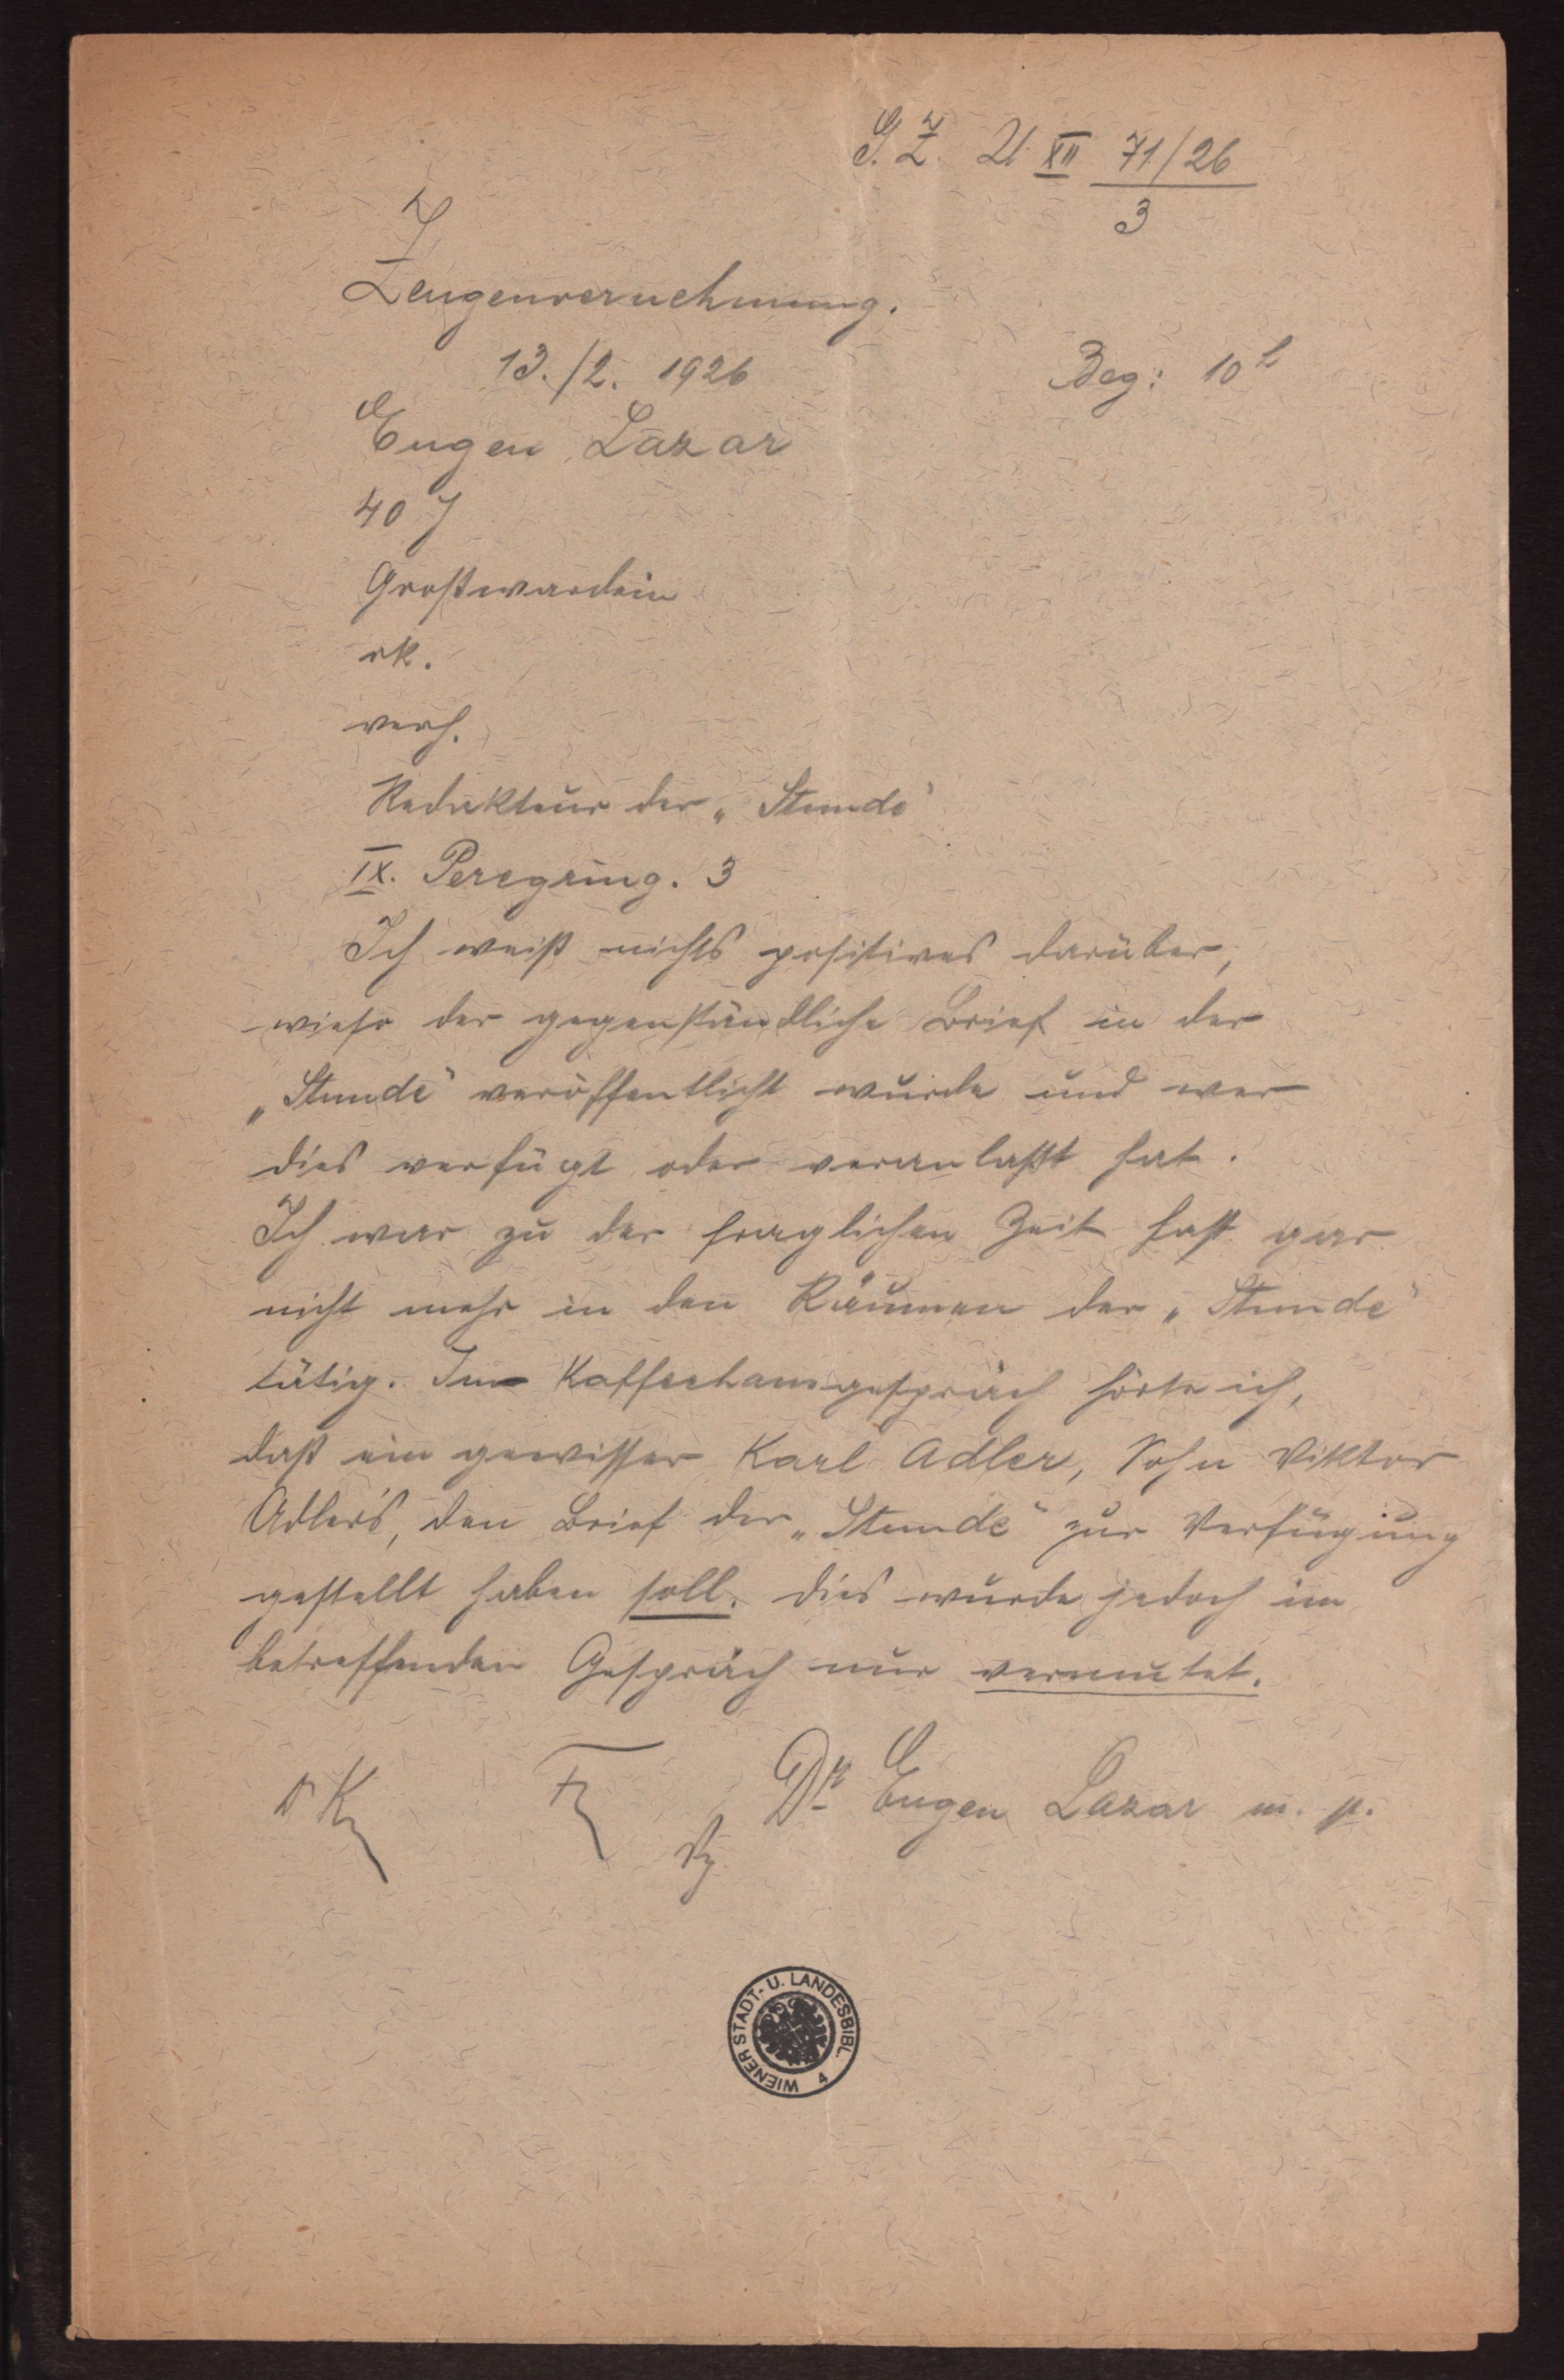 G. Z. U XII 71/26
3
Zeugenvernehmung.
13./2. 1926 Beg: 10h
Eugen Lazar
40 J
Großwardein
rk.
verh.
Redakteur der „Stunde"
IX. Peregring. 3
Ich weiß nichts positives darüber,
wieso der gegenständliche Brief in der
„Stunde" veröffentlicht wurde und wer
dies verfügt oder veranlaßt hat.
Ich war zu der fraglichen Zeit fast gar
nicht mehr in den Räumen der „Stunde"
tätig. Im Kaffeehausgespräch hörte ich,
daß ein gewisser Karl Adler, Sohn Viktor
Adler's, den Brief der „Stunde" zur Verfügung
gestellt haben soll. Dies wurde jedoch im
betreffenden Gespräch nur vermutet.
Dr Eugen Lazar m. p.
WIENER STADT- U. LANDESBIBL. 4